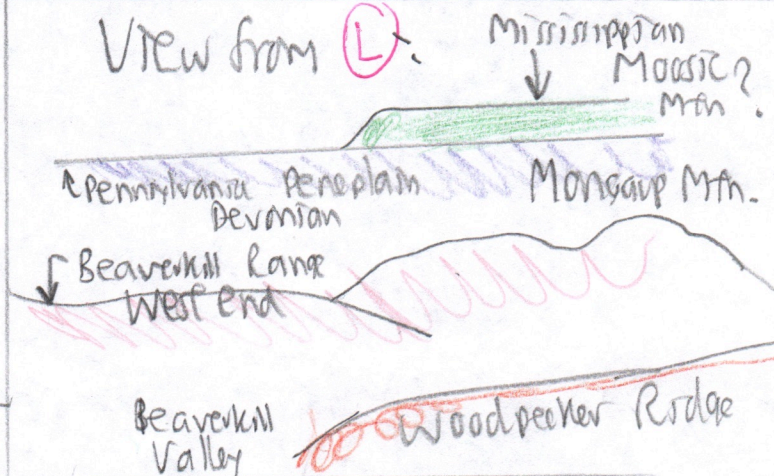 View from L:
Mississippian
Moosic ?
Mtn.
Pennsylvania Peneplain
Devonian
Mongaup Mtn.
Beaverkill Range
West End
Beaverkill
Valley
Woodpecker Ridge